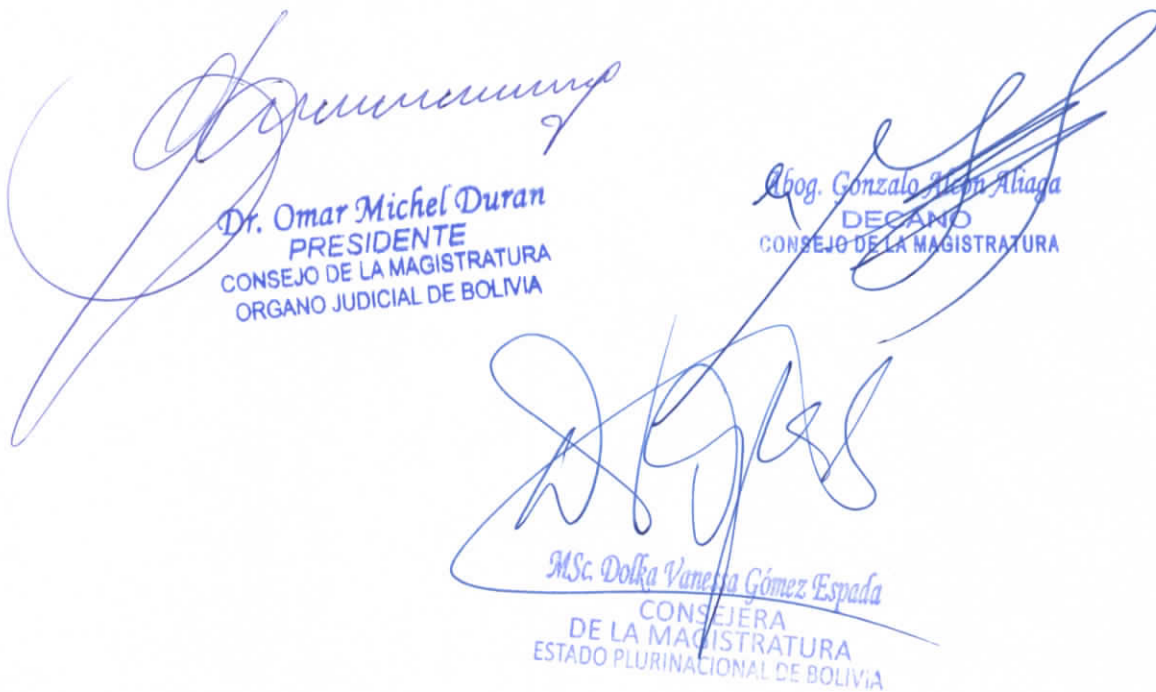 Dr. Omar Michel Duran
PRESIDENTE
CONSEJO DE LA MAGISTRATURA
ORGANO JUDICIAL DE BOLIVIA
Abog. Gonzalo Alcón Aliaga
DECANO
CONSEJO DE LA MAGISTRATURA
MSc. Dolka Vanessa Gómez Espada
CONSEJERA
DE LA MAGISTRATURA
ESTADO PLURINACIONAL DE BOLIVIA